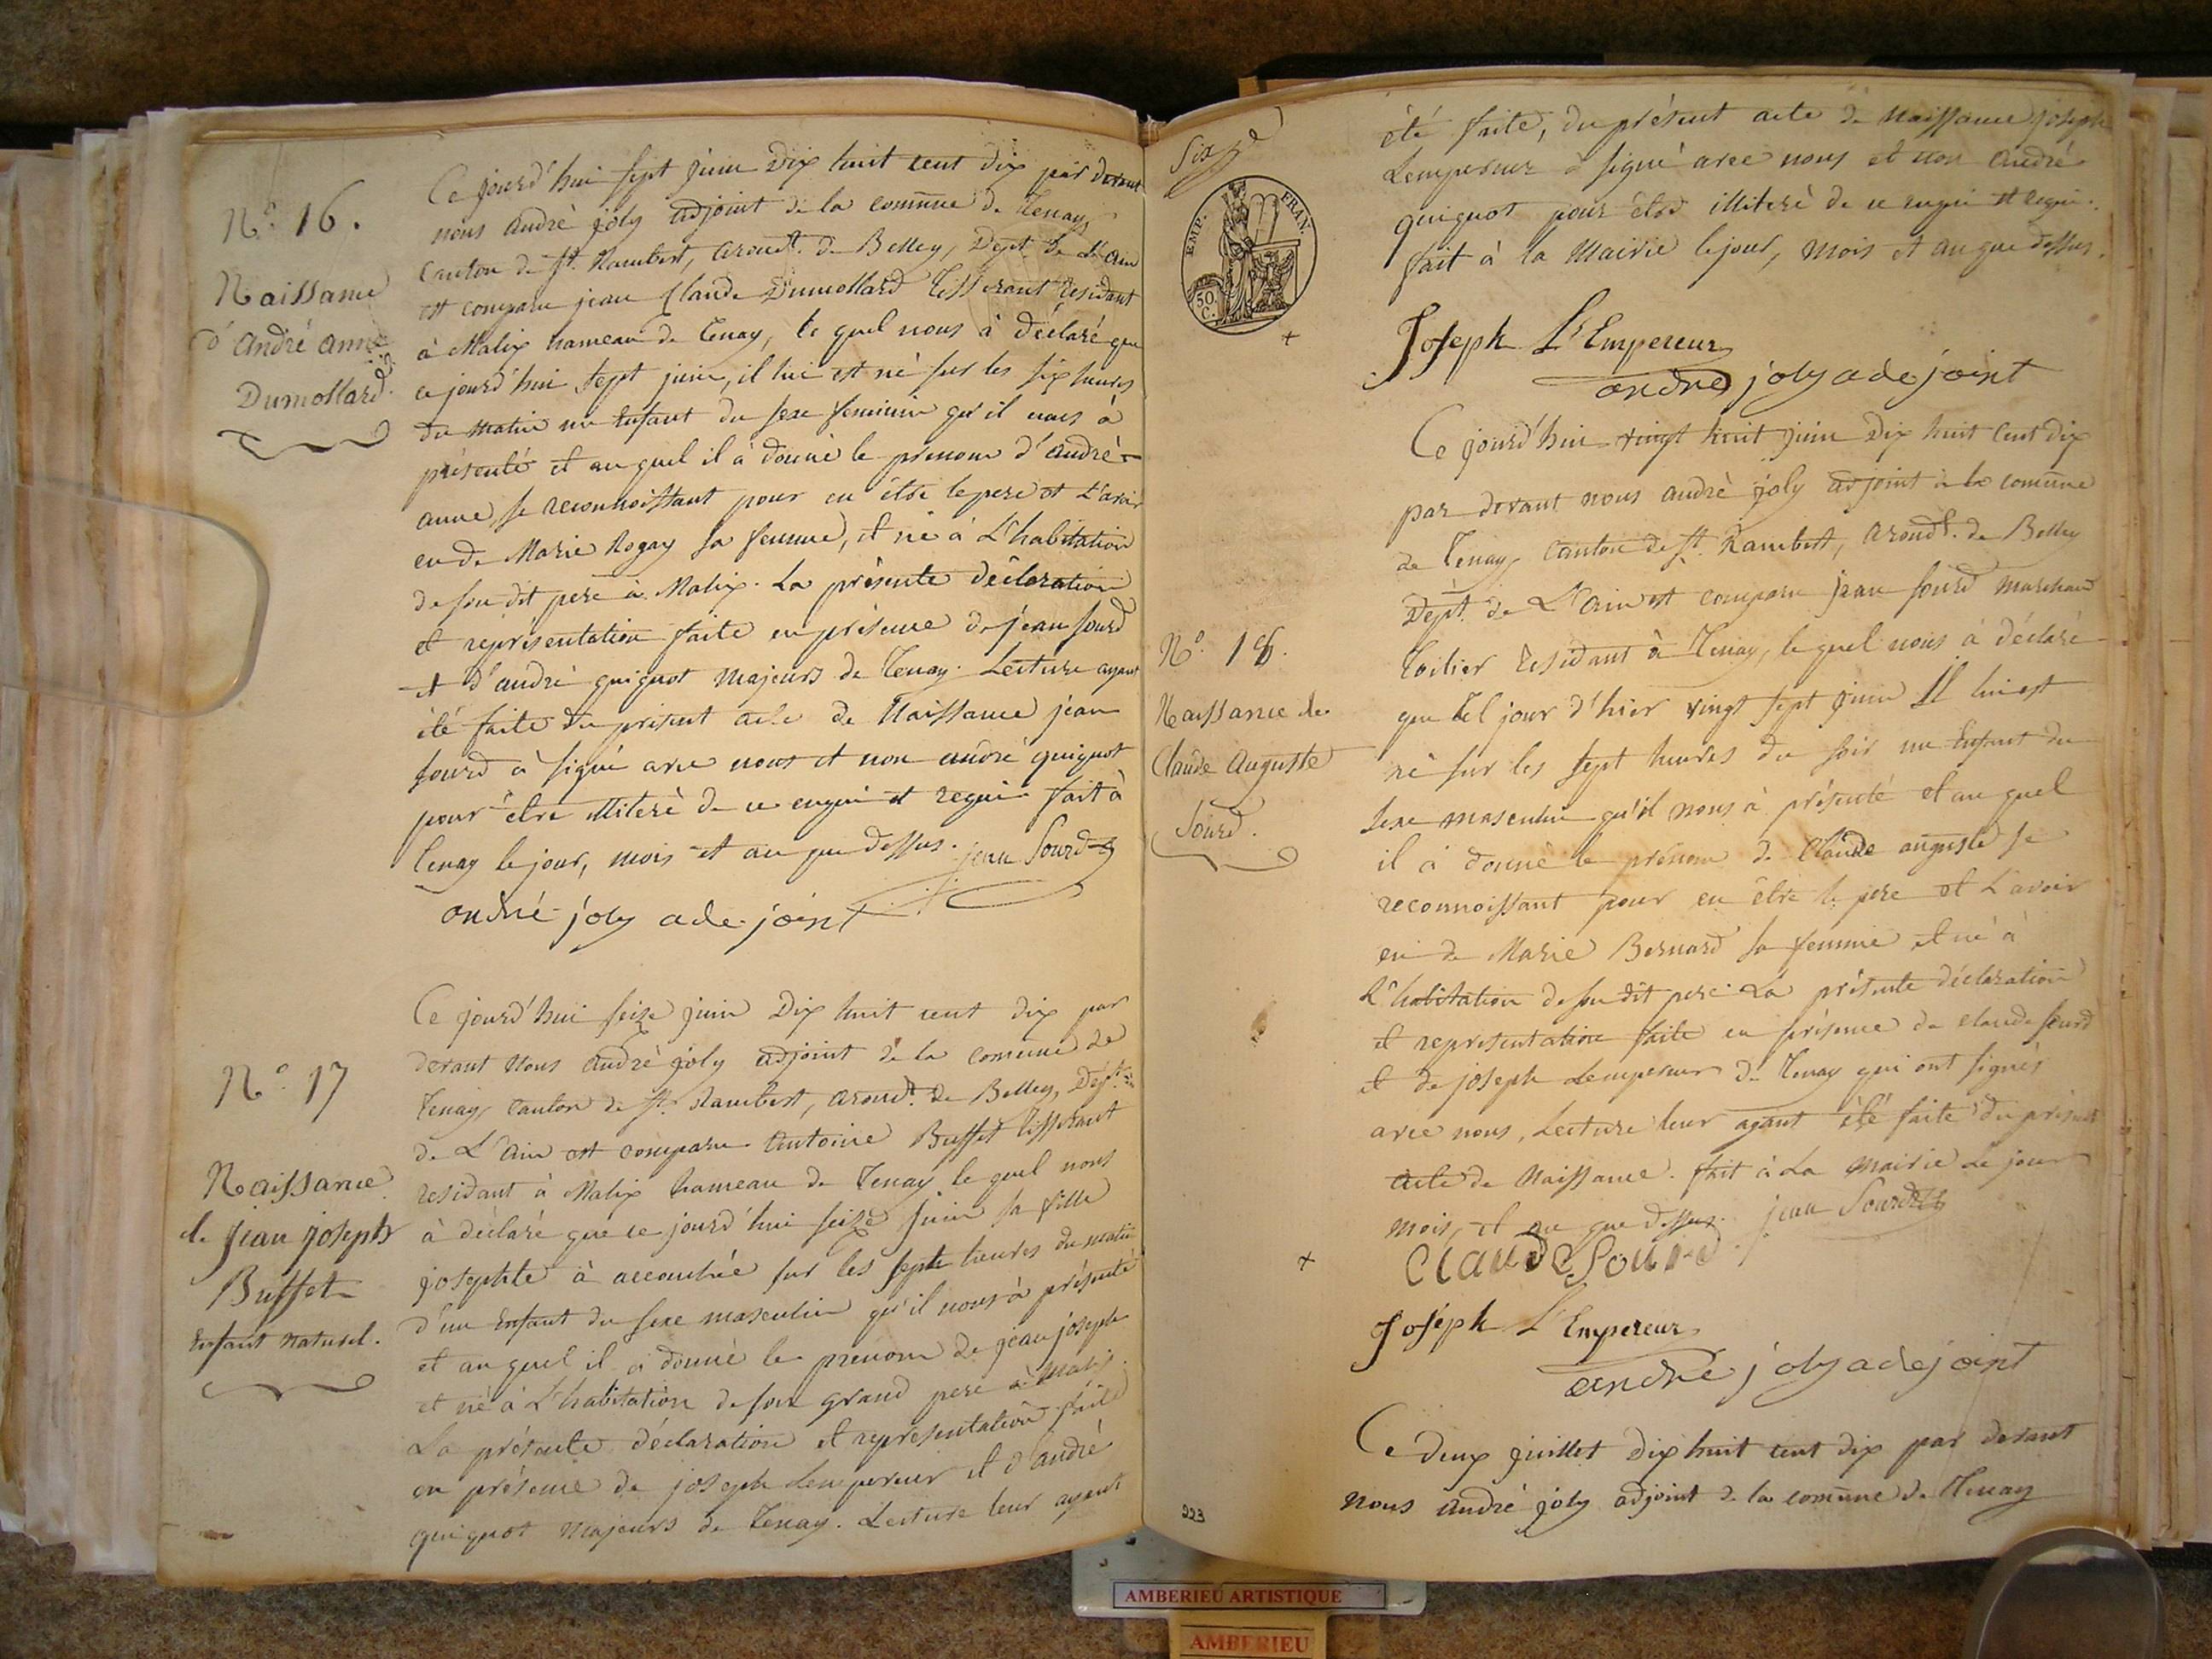 N.° 16.
Naissance
d'André anne
Dumollard.
Ce jourd'hui sept juin Dix huit cent dix par devant
nous andré joly adjoint de la comune de Tenay
Canton de St. Rambert, arond.t de Belley, Dept. de L'ain
est comparu jean Claude Dumollard Tisserant residant
à Malix hameau de Tenay, le quel nous à déclaré que
ce jourd'hui sept juin, il lui est né sur les six heures
du matin un Enfant du sexe feminin qu'il nous à
présenté et au quel il à donné le prenom d'andré-
anne, se reconnoissant pour en être le pere et l'avoir
eu de Marie Rogay sa femme, et né à L'habitation
de son dit pere à Malix. La présente déclaration
et représentation faite en présence de jean sourd
et d'andré guignot majeurs de Tenay. Lecture ayant
été faite du présent acte de Naissance jean
sourd à signé avec nous et non andré guignot
pour être illiteré de ce enquis et requis. fait à
Tenay le jour, mois et an que dessus.
jean Sourd
andré joly adejoint
N.° 17
Naissance
de jean joseph
Buffet
Enfant naturel.
Ce jourd'hui seize juin Dix huit cent dix par
devant nous andré joly adjoint de la comune de
Tenay canton de St. Rambert, arond.t de Belley, Dept.
de L'ain est comparu Antoine Buffet tisserant
residant à Malix hameau de Tenay le quel nous
à déclaré que ce jourd'hui seize juin sa fille
josephte à accouchée sur les sept heures du matin
d'un Enfant du sexe masculin qu'il nous à présenté
et au quel il à donné le prenom de jean joseph
et né à L'habitation de son grand pere à Malix.
La présente déclaration et représentation faite
en présence de joseph Lempereur et d'andré
guignot majeurs de Tenay. Lecture leur ayant
Six
EMP. FRAN.
50. C.
été faite, du présent acte de Naissance joseph
Lempereur à signé avec nous et non andré
guignot pour être illiteré de ce enquis et requis.
fait à la Mairie le jour, mois et an que dessus.
Joseph L'Empereur
andré joly adejoint
N.° 18.
Naissance de
Claude Auguste
Sourd.
Ce jourd'hui vingt huit juin Dix huit cent dix
par devant nous andré joly adjoint à la comune
de Tenay, Canton de St. Rambert, arond.t de Belley
Dept. de L'ain est comparu jean sourd marchand
toilier residant à Tenay, le quel nous à déclaré
que tel jour d'hier vingt sept juin Il lui est
né sur les sept heures du soir un Enfant du
sexe masculin qu'il nous à présenté et au quel
il à donné le prénom de Claude auguste se
reconnoissant pour en être le pere et l'avoir
eu de Marie Bernard sa femme et né à
L'habitation de son dit pere. La présente déclaration
et représentation faite en présence de claude sourd
et de joseph Lempereur de Tenay qui ont signés
avec nous, Lecture leur ayant été faite du présent
acte de Naissance. fait à La Mairie Le jour
mois, et an que dessus. jean Sourd
Claude Sourd
Joseph L'Empereur
andré joly adejoint
Ce deux juillet dix huit cent dix par devant
nous andré joly adjoint de la comune de Tenay
223
AMBERIEU ARTISTIQUE
AMBERIEU